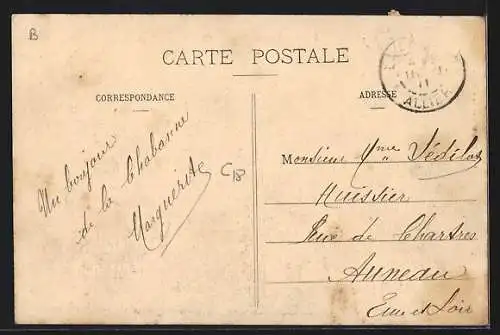 B
CARTE POSTALE
CORRESPONDANCE
ADRESSE
ALLIER
Un bonjour
de la Chabanne
Marguerite
C18
Monsieur Mme
Huissier
Rue de Chartres
Auneau
Eure et Loir